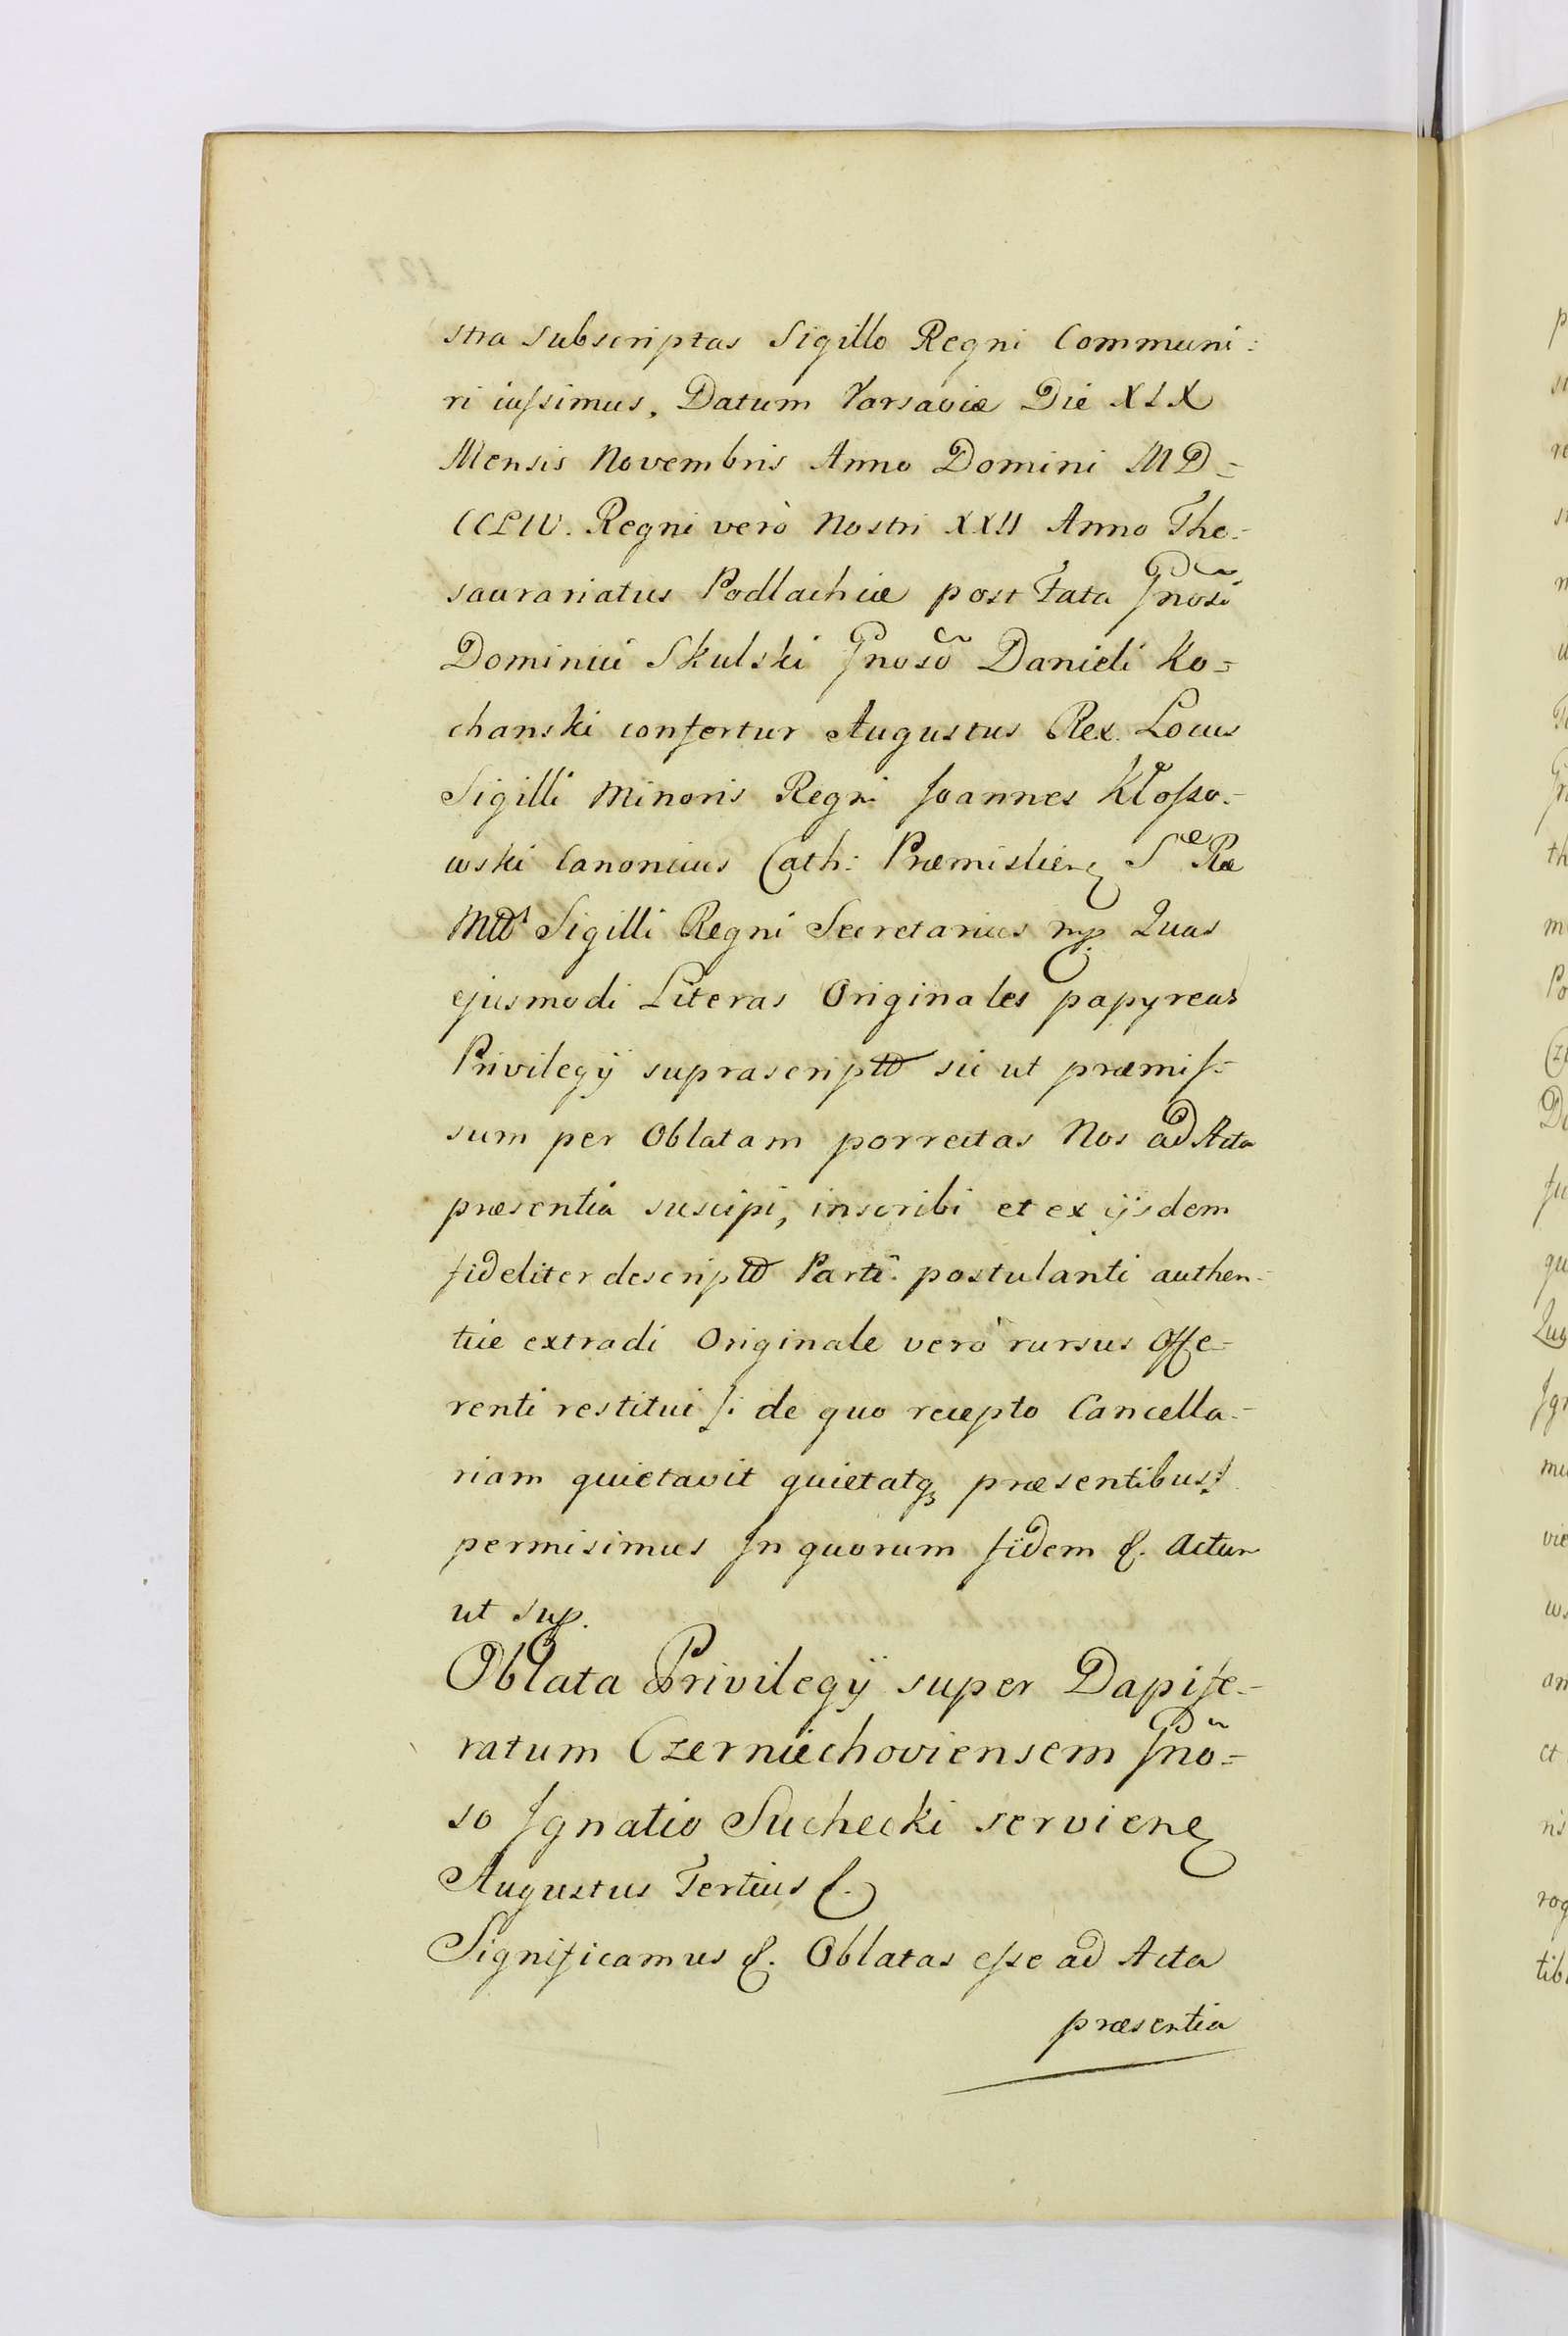 stra subscriptas Sigillo Regni Communi:
ri iussimus. Datum Varsaviæ Die XIX
Mensis Novembris Anno Domini MD=
CCLIV. Regni verò Nostri XXII Anno The=
saurariatus Podlachiæ post Fata Gnosi
Dominici Skulski Gnoso Danieli Ko=
chanski confertur Augustus Rex. Locus
Sigilli Minoris Regni Joannes Kłosso=
wski Canonicus Cath: Præmislien S Ræ
Mttis Sigilli Regni Secretarius mp. Quas
ejusmodi Literas Originales papyreas
Privilegÿ suprascriptt sic ut præmis=
sum per Oblatam porrectas Nos ad Acta
præsentia suscipi, inscribi et ex ijsdem
fideliter descriptt Parti postulanti authen=
tice extradi Originale verò rursus Offe=
renti restitui /: de quo recepto Cancella=
riam quietavit quietatq præsentibus :/
permisimus In quorum fidem &. Actum
ut sup.
Oblata Privilegÿ super Dapife=
ratum Czerniechoviensem Gno=
so Ignatio Suchecki servien
Augustus Tertius &.
Significamus &. Oblatas esse ad Acta
præsentia